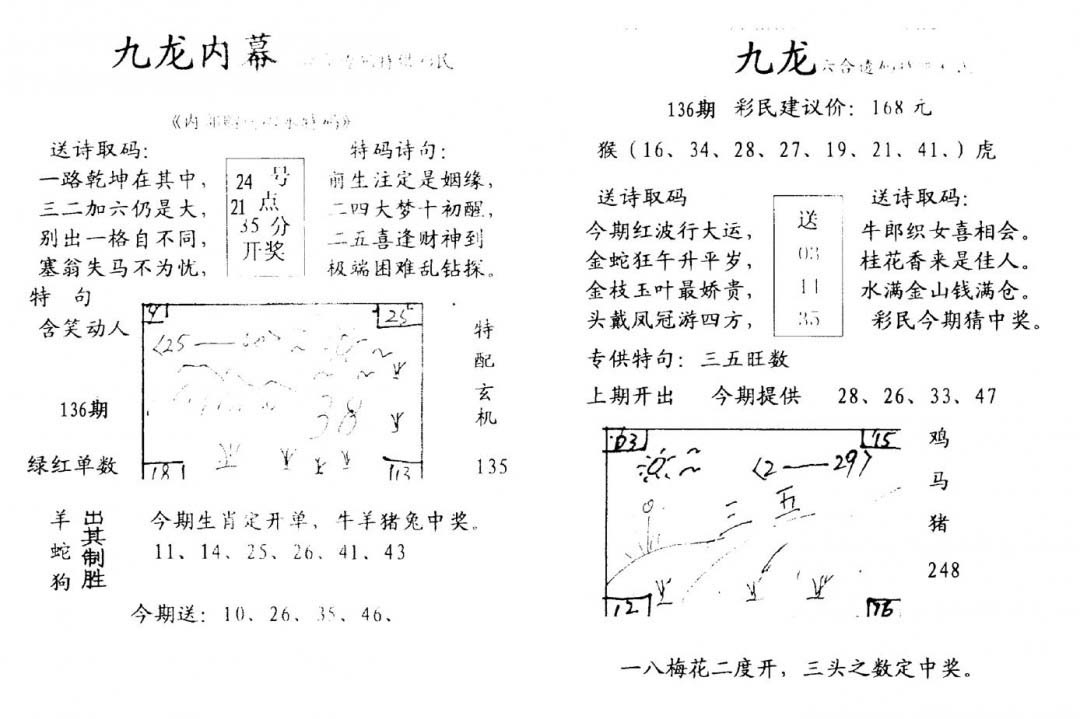 九龙内幕
送诗取码：
一路乾坤在其中，
三二加六仍是大，
别出一格自不同，
塞翁失马不为忧，
24 号
21 点
35 分
开奖
特码诗句：
前生注定是姻缘，
二四大梦十初醒，
二五喜逢财神到
极端困难乱钻探。
特 句
含笑动人
136期
绿红单数
25
〈25
38
18
113
特
配
玄
机
135
羊
蛇
狗
出其制胜
今期生肖定开单，牛羊猪兔中奖。
11、14、25、26、41、43
今期送：10、26、35、46、
九龙
136期 彩民建议价：168元
猴（16、34、28、27、19、21、41、）虎
送诗取码
今期红波行大运，
金蛇狂午升平岁，
金枝玉叶最娇贵，
头戴凤冠游四方，
送
03
11
35
送诗取码：
牛郎织女喜相会。
桂花香来是佳人。
水满金山钱满仓。
彩民今期猜中奖。
专供特句：三五旺数
上期开出 今期提供 28、26、33、47
63
15
〈2——29〉
三 五
12
16
鸡
马
猪
248
一八梅花二度开，三头之数定中奖。